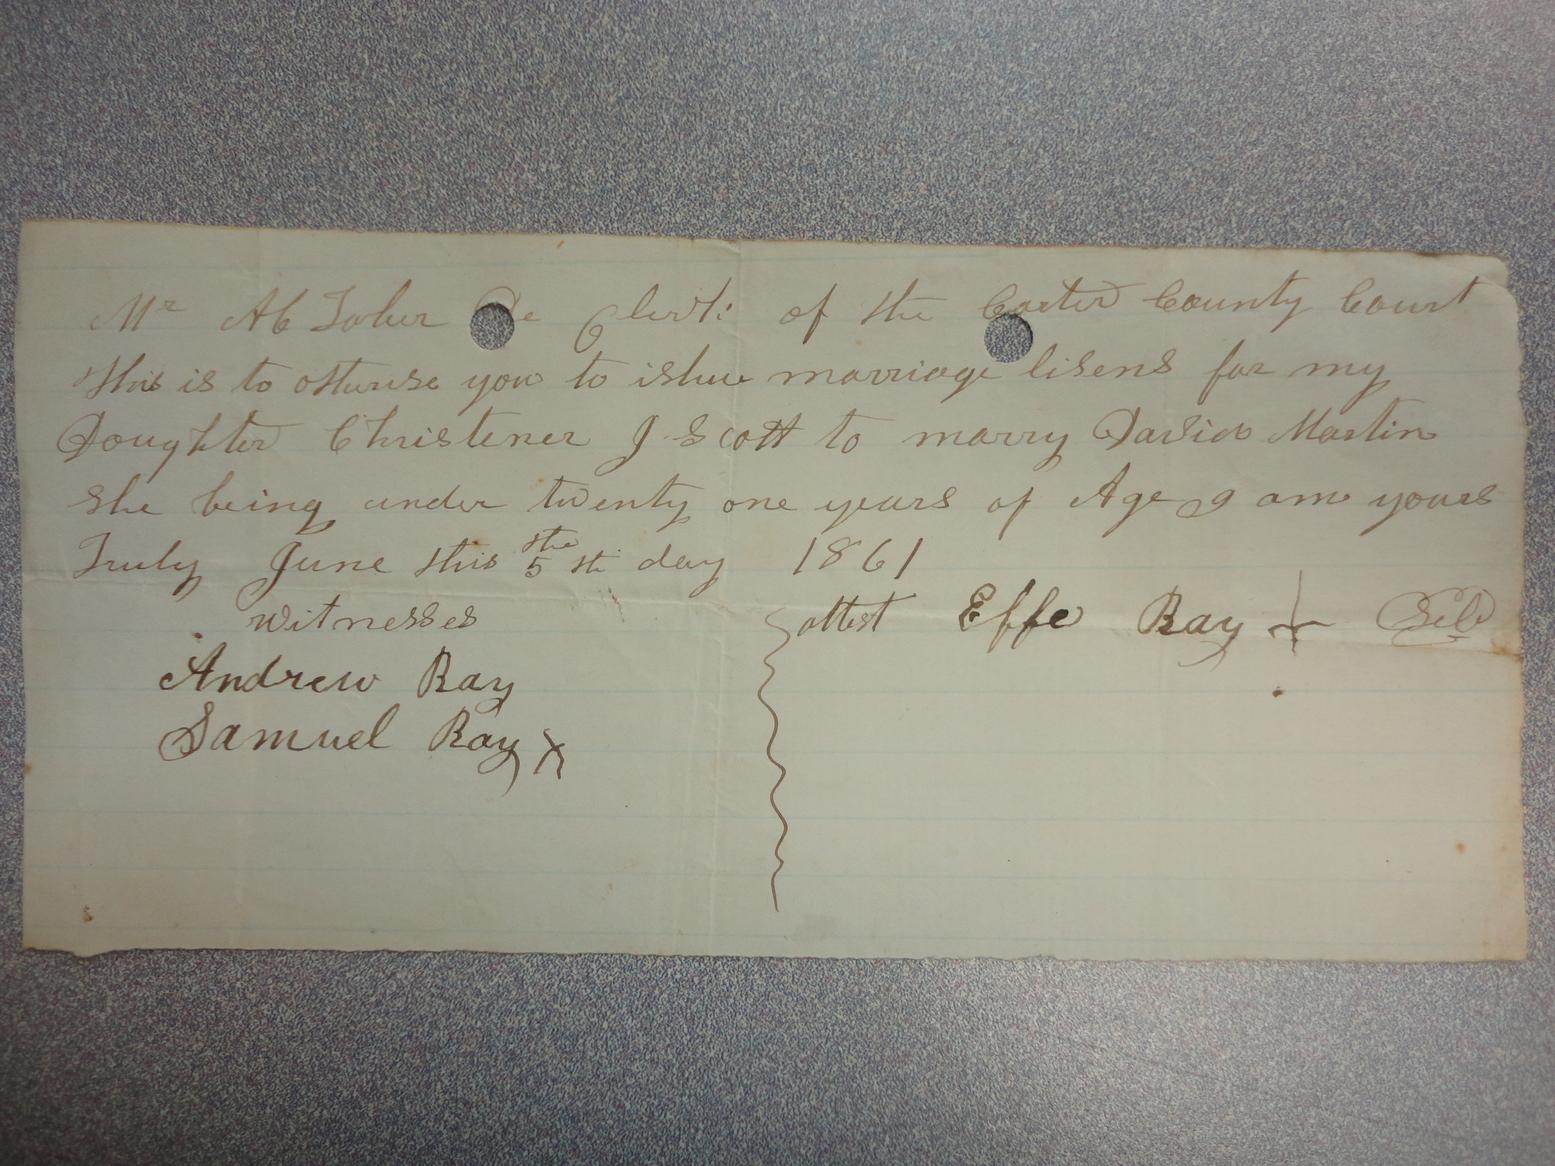 Mr AC Toler De Clerk: of the Carter County Court
this is to otturise you to ishue marriage lisens for my
Doughter Christener J Scott to marry David Martin
she being under twenty one years of Age I am yours
Truly June this the 5 th day 1861
witnesses attest Effe Ray + Sel
Andrew Ray
Samuel Ray X